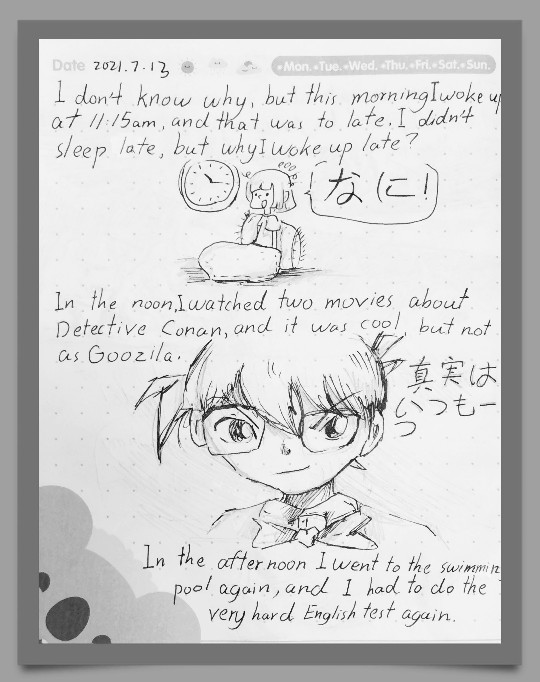 Date 2021.7.13 •Mon.•Tue.•Wed.•Thu.•Fri.•Sat.•Sun.
I don't know why, but this morning I woke up
at 11:15am, and that was to late, I didn't
sleep late, but why I woke up late?
なに!
In the noon, I watched two movies about
Detective Conan, and it was cool, but not
as Goozila.
真実は
いつもー
つ
In the afternoon I went to the swimmin
pool again, and I had to do the
very hard English test again.